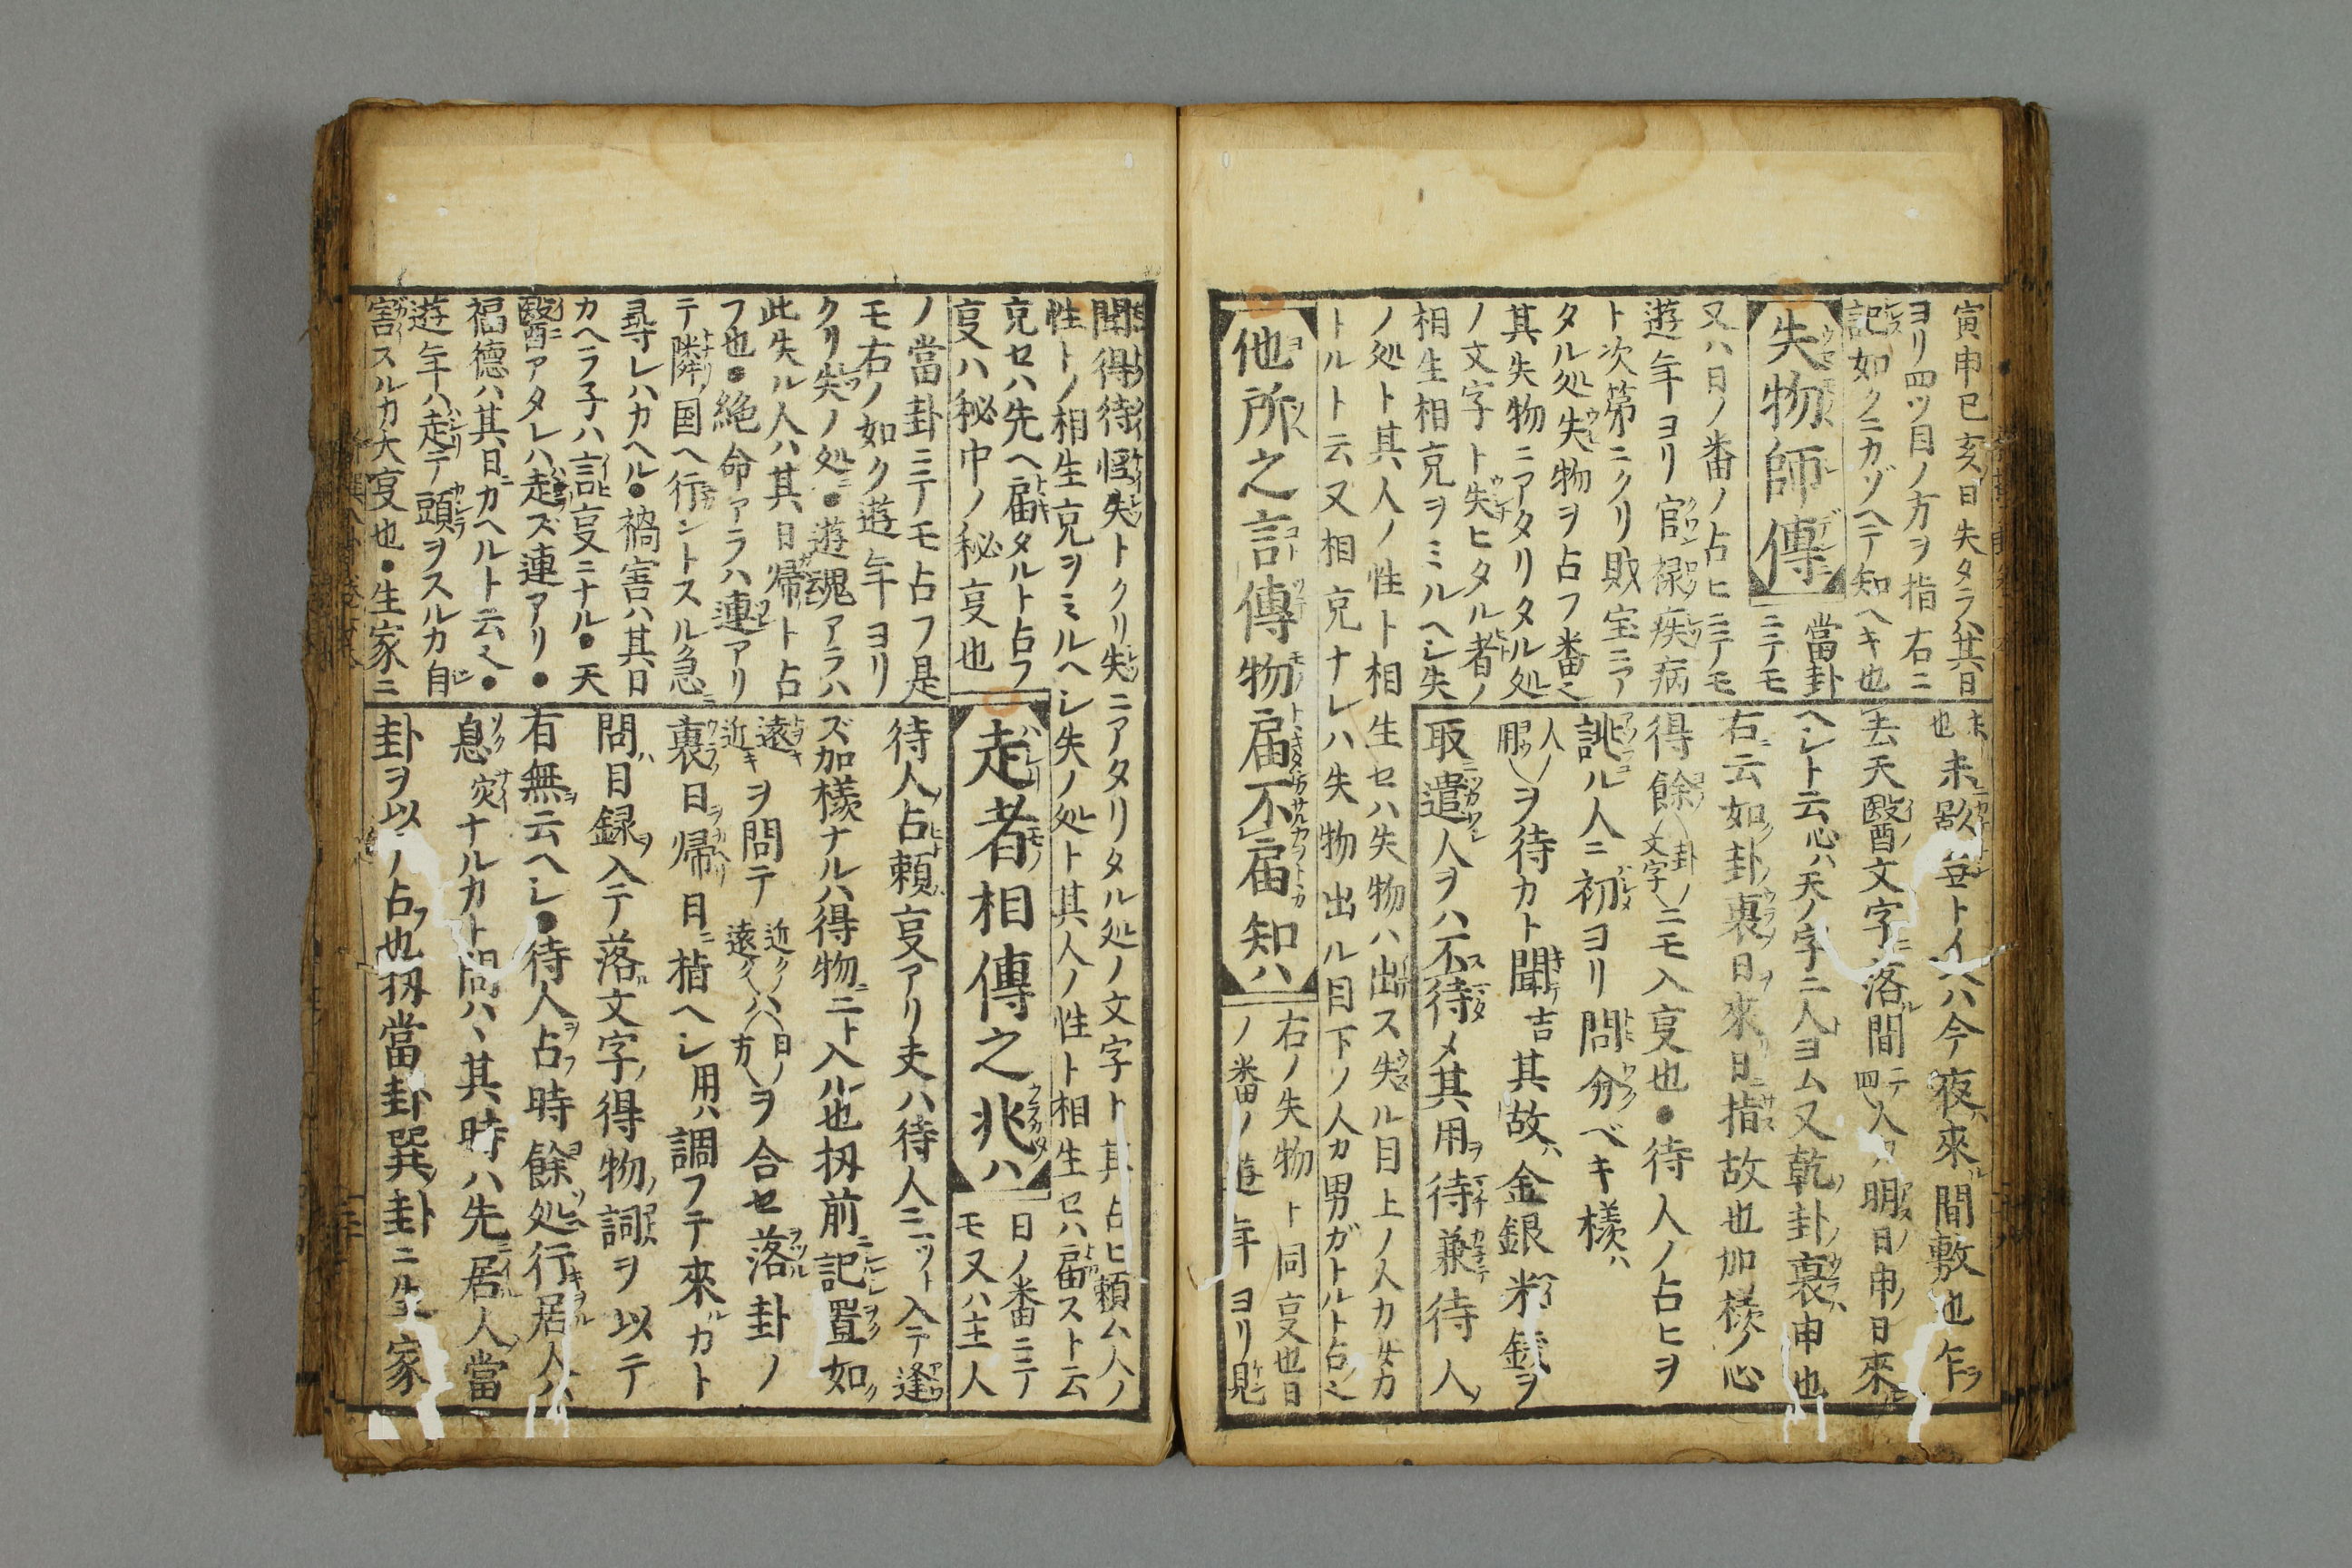 寅申巳亥ノ日失タラハ其日
ヨリ四ツ目ノ方ヲ指右ニ
記如クニカゾヘテ知ヘキ也
失物師傳
當卦
ニテモ
又ハ日ノ番ノ占ヒニテモ
遊年ヨリ官禄疾病
ト次第ニクリ敗宝ニア
タル処失物ヲ占フ番也
其失物ニアタリタル処
ノ文字ト失ヒタル者ノ
相生相克ヲミルヘシ失
ノ処ト其人ノ性ト相生セハ失物ハ出ス失ル目上ノ人カ女カ
トルト云又相克ナレハ失物出ル目下ノ人カ男ガトルト占也
他所之言傳物届不届知ハ
右ノ失物ト同叓也日
ノ番ノ遊年ヨリ見
去天醫文字ニ落間
ヘシト云心ハ天ノ字ニ人トヨム又乾卦ノ裏ハ申也
右ニ云如卦ノ裏ノ日ヲ來日ニ指故也加様ノ心
得餘ノ卦ノ文字ニモ入叓也●待人ノ占ヒヲ
誂ル人ニ初ヨリ問分ベキ様ハ
人ノ用ヲ待カト聞吉其故ハ金銀米銭ヲ
取ニ遣人ヲハ不待メ其用ヲ待兼待人
聞得待怪失トクリ失ニアタリタル処ノ文字ト其占ヒ頼ム人ノ
性トノ相生克ヲミルヘシ失ノ処ト其人ノ性ト相生セハ届スト云
克セハ先ヘ届タルト占フ
叓ハ秘中ノ秘叓也
走者相傳之兆ハ
日ノ番ニテ
モ又ハ主人
ノ當卦ニテモ占フ是
モ右ノ如ク遊年ヨリ
クリ失ノ処ニ●遊魂アラハ
此失ル人ハ其日帰ト占
フ也●絶命アラハ連アリ
テ隣ノ国ヘ行ントスル急ニ
尋レハカヘル●禍害ハ其日
カヘラ子ハ言叓ニナル●天
醫アタレハ走ズ連アリ●
福德ハ其日ニカヘルト云也●
遊年ハ走テ頭ヲスルカ自
害スルカ大叓也●生家ニ
待人ノ占頼叓アリ夫ハ待人ニット入テ逢
ズ加様ナルハ得物ニト入ル也扨前ニ記置如ク
遠キ近キヲ問テ近クハ日ノ遠クハ方ヲ合セ落卦ノ
裏ノ日ヲ帰日ニ指ヘシ用ハ調フテ來ルカト
問ハ目録ヲ入テ落文字ノ得物ノ詞ヲ以テ
有無ヲ云ヘシ●待人占時餘処行居人ハ
息災ナルカト問ハヽ其時ハ先ニ居人ノ當
卦ヲ以ノ占フ也扨當卦巽卦ニ生家